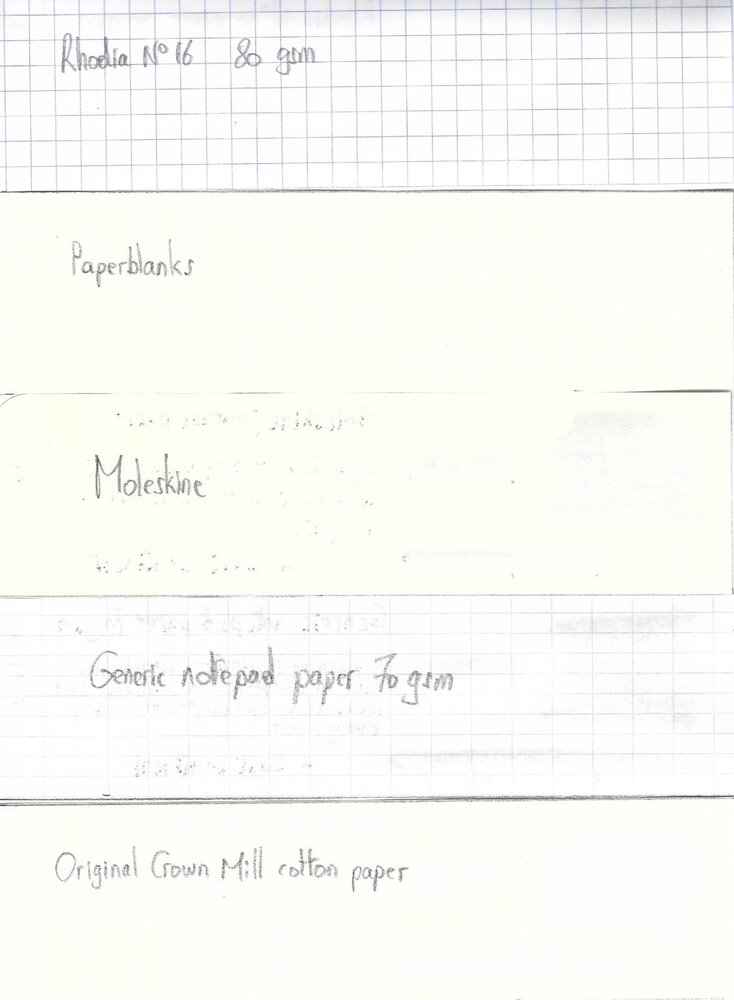 Rhodia Nº 16 80 gsm
Paperblanks
Moleskine
Generic notepad paper 70 gsm
Original Crown Mill cotton paper